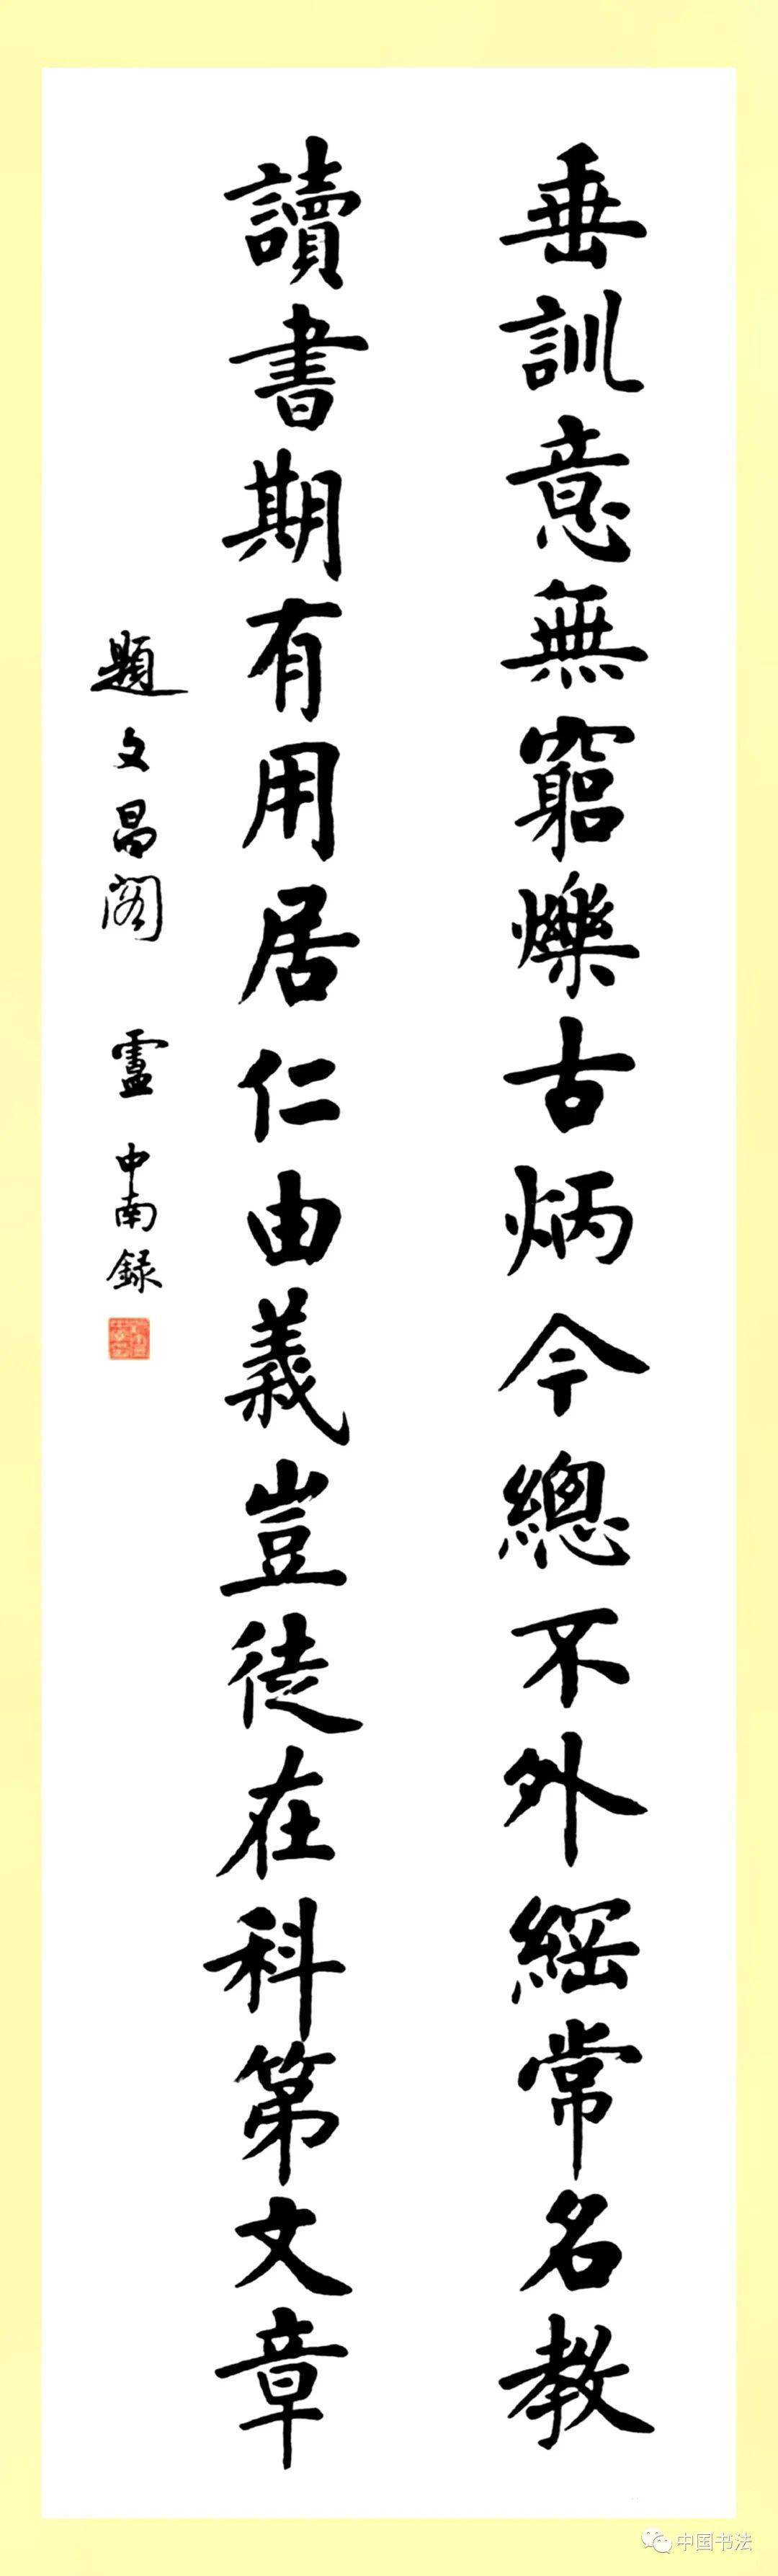 垂訓意無窮爍古炳今總不外綱常名教
讀書期有用居仁由義豈徒在科第文章
題文昌阁 盧中南録
中国书法